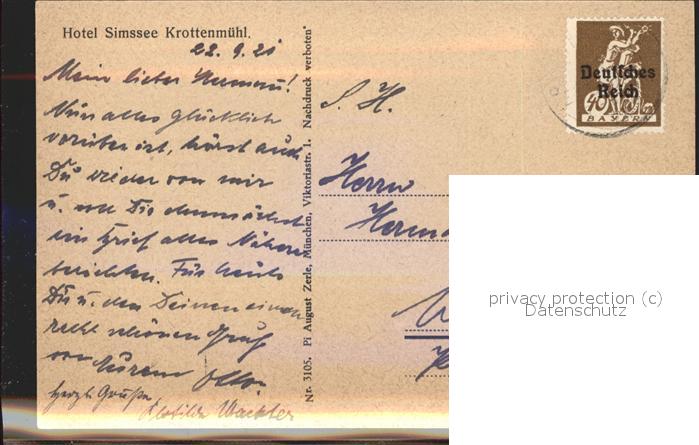 Hotel Simssee Krottenmühl.
22.9.21
Mein lieber Hermann!
Nun alles glücklich
vorüber ist, hörst auch
Du wieder von mir
u. will Dir demnächst
ein Brief alles Nähere
berichten. Für heute
Dir u. den Deinen einen
recht schönen Gruß
von Eurem Otto.
herzl. Grüße
Klotilde Wachter
Nr. 3105. Pi August Zerle, München, Viktoriastr. 1. Nachdruck verboten
S. H.
Herrn
Deutsches
Reich
40
BAYERN
privacy protection (c)
Datenschutz